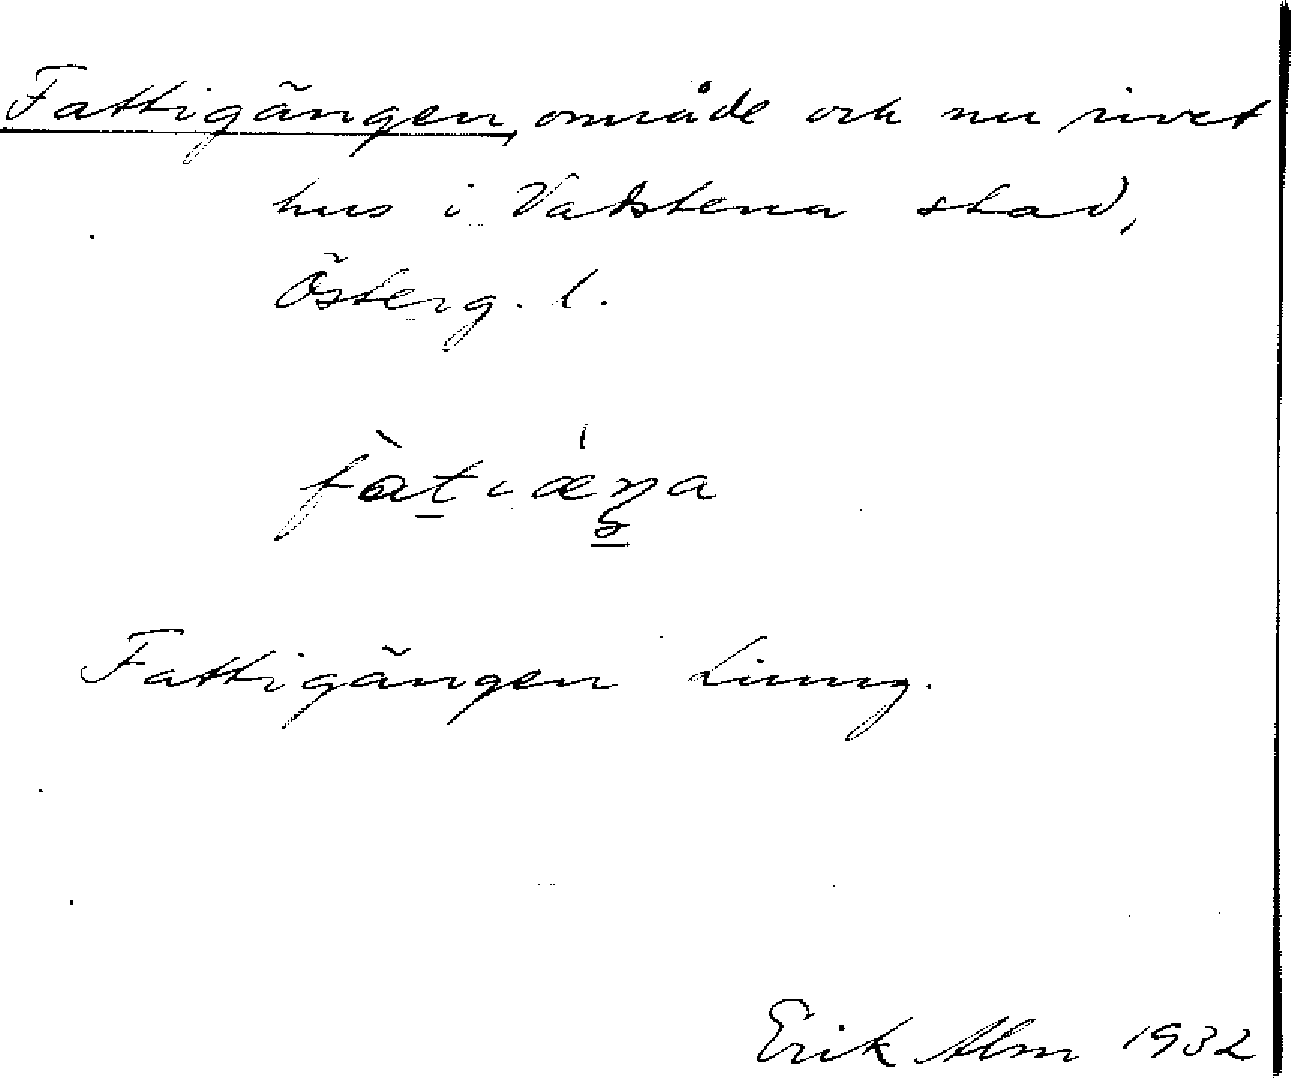 Fattigängen, område och nu rivet
hus i Vadstena stad,
Österg. l.
Fattigängen Liung.
Erik Alm 1932